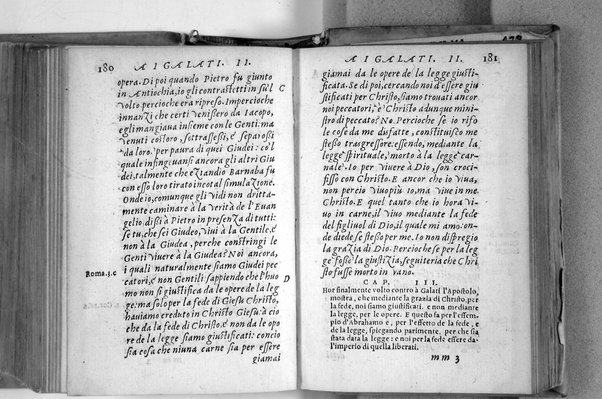 180 A I GALATI. II.
opera. Di poi quando Pietro fu giunto
in Antiochia, io gli contrastetti in sù'l C
volto percioche era ripreso. Imperoche
innanzi che certi venißero da Iacopo,
egli mangiaua insieme con le Genti: ma
venuti costoro, sottrasseßi, e separoßi
da loro per paura di quei Giudei: co'l
quale infinganßi ancora gli altri Giu
dei, talmente che eziandio Barnaba fu
con esso loro tirato in cotal simulazione.
Onde io, comunque gli vidi non dritta-
mente caminare à la verità de l'Euan
gelio. dißi à Pietro in presenza di tutti:
se tu, che sei Giudeo, viui à la Gentile, e
non à la Giudea, perche constringi le
Genti viuere à la Giudea? Noi ancora,
Roma. 3. c i quali naturalmente siamo Giudei pec
catori, e non Gentili: sappiendo che l'huo D
mo non si giustifica da le opere de la leg
ge: ma solo per la fede di Giesù Christo,
hauiamo creduto in Christo Giesù: à cio
che da la fede di Christo. e non da le ope
re de la legge siamo giustificati: concio
sia cosa che niuna carne sia per essere
giamai
A I GALATI. II. 181
giamai da le opere de la legge giusti-
ficata. Se di poi, cercando noi d'essere giu
stificati per Christo, siamo trouati ancor
noi peccatori, è Christo adunque mini-
stro di peccato? No. Perche se io rifo
le cose da me disfatte, constituisco me
stesso trasgressore. essendo, mediante la
legge spirituale, morto à la legge car-
nale. Io per viuere à Dio, son croci-
fisso con Christo. E ancor che io viua,
non percio viuo più Io, ma viue in me
Christo. E quel tanto che io hora vi-
uo in carne, il viuo mediante la fede
del figliuol di Dio, il quale mi amo: on-
de diede se stesso per me. Io non dispregio
la grazia di Dio. Percioche se per la leg
ge foße la giustizia, seguiteria che Chri
sto fusse morto in vano.
CAP. III.
Hor finalmente volto contro à Galati l'Apostolo,
mostra, che mediante la grazia di Christo, per
la fede, noi siamo giustificati. e non mediante
la legge, per le opere. E questo fa per l'essem-
pio d'Abrahamo e, per l'effetto de la fede, e
de la legge, spiegando parimente, per che sia
stata data la legge: e noi per la fede essere da-
l'imperio di quella liberati.
mm 3